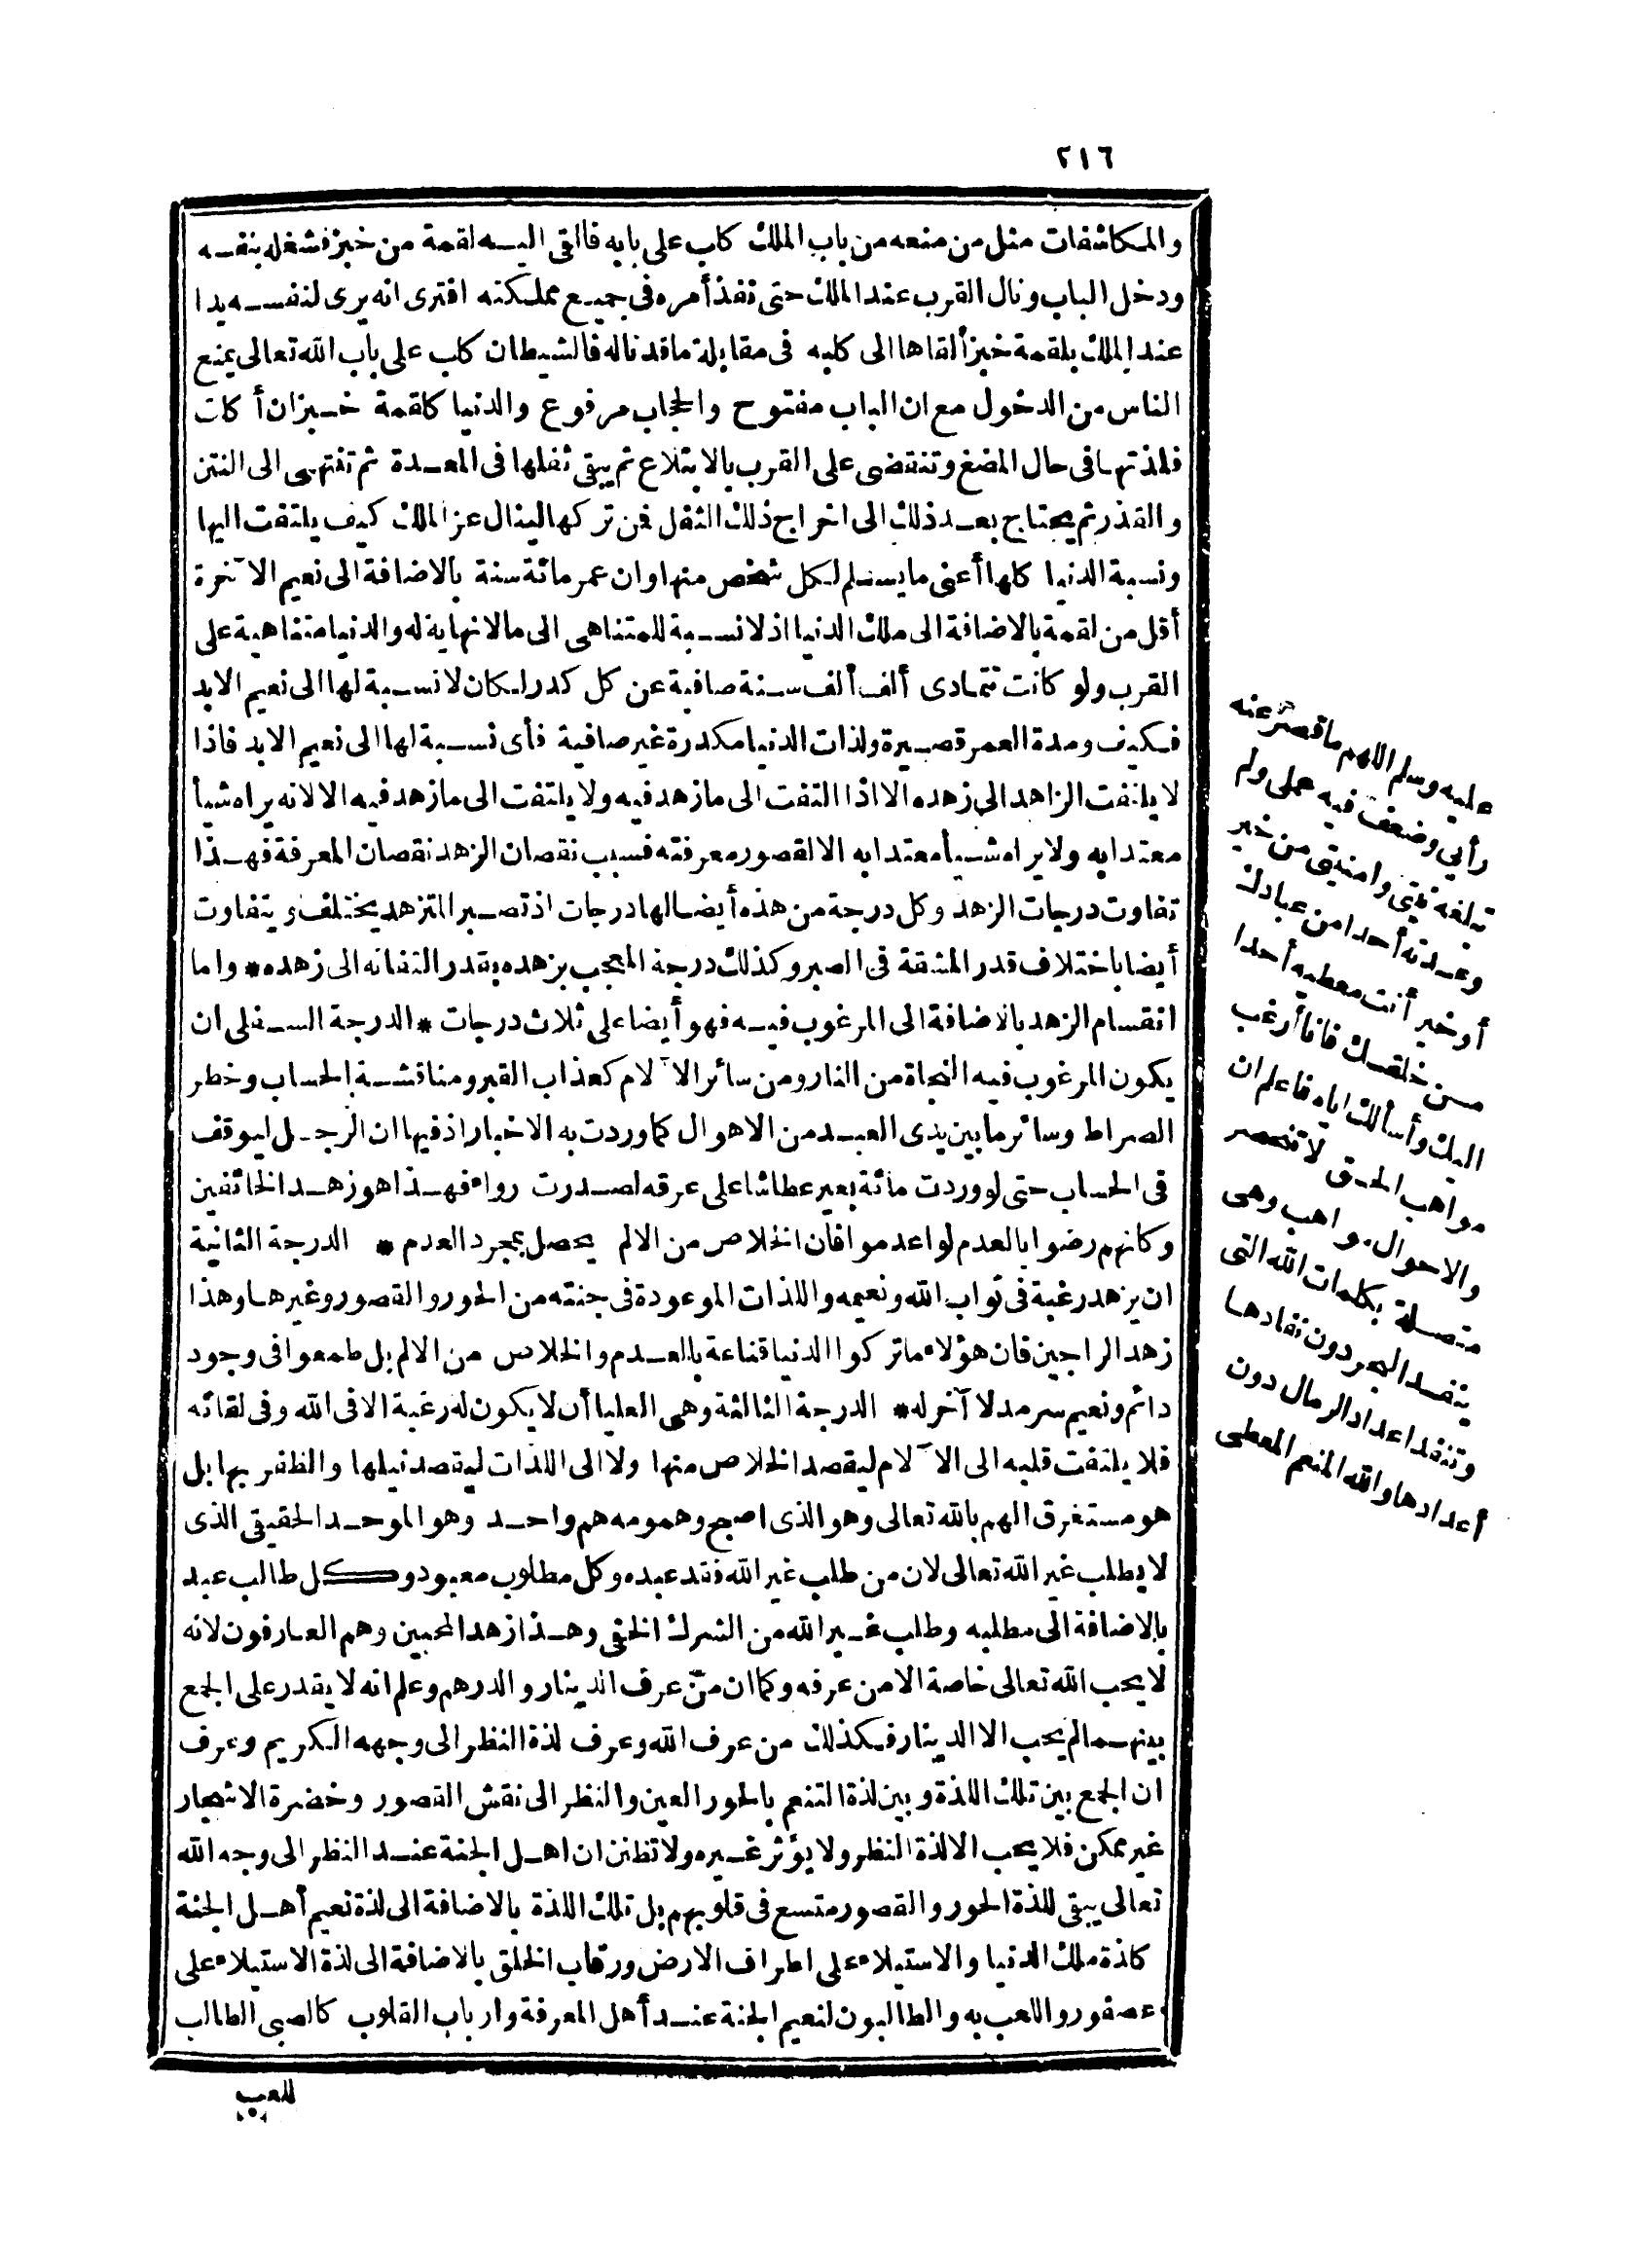 ٢١٦
والمكاشفات مثل من منعه من باب الملك كلب على بابه فالقى اليه لقمة من خبز فشغله بنفسه
ودخل الباب ونال القرب عند الملك حتى نفذ أمره فى جميع مملكته افترى انه يرى لنفسه يدا
عند الملك بلقمة خبز ألقاها الى كلبه فى مقابلة ما قد ناله فالشيطان كلب على باب الله تعالى يمنع
الناس من الدخول مع ان الباب مفتوح والحجاب مرفوع والدنيا كلقمة خبز ان أكلت
فلذتها فى حال المضغ وتنقضى على القرب بالابتلاع ثم يبقى ثفلها فى المعدة ثم تنتهى الى النتن
والقذر ثم يحتاج بعد ذلك الى اخراج ذلك الثفل فمن تركها لينال عز الملك كيف يلتفت اليها
ونسبة الدنيا كلها أعنى ما يسلم لكل شخص منها وان عمر مائة سنة بالاضافة الى نعيم الآخرة
أقل من لقمة بالاضافة الى ملك الدنيا اذ لا نسبة للمتناهى الى ما لا نهاية له والدنيا متناهية على
القرب ولو كانت تتمادى ألف ألف سنة صافية عن كل كدر لكان لا نسبة لها الى نعيم الابد
فكيف ومدة العمر قصيرة ولذات الدنيا مكدرة غير صافية فأى نسبة لها الى نعيم الابد فاذا
لا يلتفت الزاهد الى زهده الا اذا التفت الى ما زهد فيه ولا يلتفت الى ما زهد فيه الا لانه يراه شيأ
معتدا به ولا يراه شيأ معتدا به الا لقصور معرفته فسبب نقصان الزهد نقصان المعرفة فهذا
تفاوت درجات الزهد وكل درجة من هذه أيضا لها درجات اذ تصبر المتزهد يختلف ويتفاوت
أيضا باختلاف قدر المشقة فى الصبر وكذلك درجة المعجب بزهده بقدر التفاته الى زهده * واما
انقسام الزهد بالاضافة الى المرغوب فيه فهو أيضا على ثلاث درجات * الدرجة السفلى ان
يكون المرغوب فيه النجاة من النار ومن سائر الآلام كعذاب القبر ومناقشة الحساب وخطر
الصراط وسائر ما بين يدى العبد من الاهوال كما وردت به الاخبار اذ فيها ان الرجل ليوقف
فى الحساب حتى لو وردت مائة بعير عطاشا على عرقه لصدرت رواء فهذا هو زهد الخائفين
وكانهم رضوا بالعدم لو اعدموا فان الخلاص من الالم يحصل بمجرد العدم * الدرجة الثانية
ان يزهد رغبة فى ثواب الله ونعيمه واللذات الموعودة فى جنته من الحور والقصور وغيرها وهذا
زهد الراجين فان هؤلاء ما تركوا الدنيا قناعة بالعدم والخلاص من الالم بل طمعوا فى وجود
دائم ونعيم سرمد لا آخر له * الدرجة الثالثة وهى العليا أن لا يكون له رغبة الا فى الله وفى لقائه
فلا يلتفت قلبه الى الآلام ليقصد الخلاص منها ولا الى اللذات ليقصد نيلها والظفر بها بل
هو مستغرق الهم بالله تعالى وهو الذى اصبح وهمومه هم واحد وهو الموحد الحقيقى الذى
لا يطلب غير الله تعالى لان من طلب غير الله فقد عبده وكل مطلوب معبود وكل طالب عبد
بالاضافة الى مطلبه وطلب غير الله من الشرك الخفى وهذا زهد المحبين وهم العارفون لانه
لا يحب الله تعالى خاصة الا من عرفه وكما ان من عرف الدينار والدرهم وعلم انه لا يقدر على الجمع
بينهما لم يحب الا الدينار فكذلك من عرف الله وعرف لذة النظر الى وجهه الكريم وعرف
ان الجمع بين تلك اللذة وبين لذة التنعم بالحور العين والنظر الى نقش القصور وخضرة الاشجار
غير ممكن فلا يحب الا لذة النظر ولا يؤثر غيره ولا تظنن ان اهل الجنة عند النظر الى وجه الله
تعالى يبقى للذة الحور والقصور متسع فى قلوبهم بل تلك اللذة بالاضافة الى لذة نعيم أهل الجنة
كلذة ملك الدنيا والاستيلاء على اطراف الارض ورقاب الخلق بالاضافة الى لذة الاستيلاء على
عصفور واللعب به والطالبون لنعيم الجنة عند أهل المعرفة وارباب القلوب كالصبى الطالب
للعب
عليه وسلم اللهم ما قصر عنه
رأيى وضعف فيه عملى ولم
تبلغه نيتى وامنيتى من خير
وعدته أحدا من عبادك
أو خير أنت معطيه أحدا
من خلقك فانا أرغب
اليك وأسألك اياه فاعلم ان
مواهب الحق لا تنحصر
والاحوال مواهب وهى
متصلة بكلمات الله التى
ينفد البحر دون نفادها
وتنفد اعداد الرمال دون
أعدادها والله المنعم المعطى